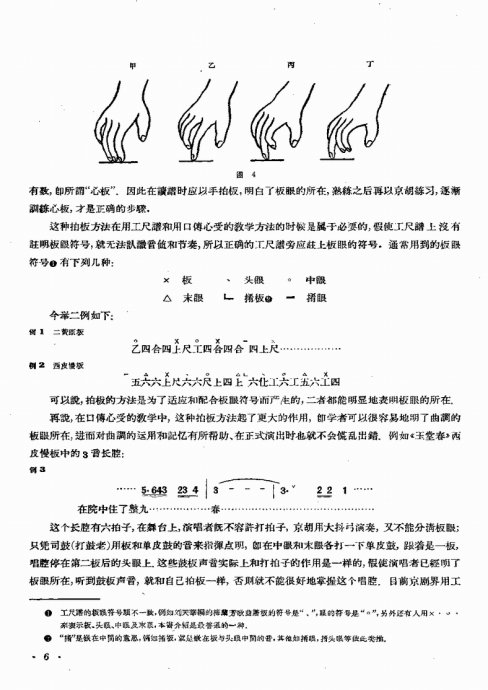 甲 乙 丙 丁
图 4
有数,卽所謂“心板”。因此在讀譜时应以手拍板,明白了板眼的所在,熟练之后再以京胡练习,逐渐
訓练心板,才是正确的步骤。
这种拍板方法在用工尺譜和用口傳心受的教学方法的时候是属于必要的,假使工尺譜上沒有
註明板眼符号,就无法認識音值和节奏,所以正确的工尺譜旁应註上板眼的符号。通常用到的板眼
符号❶有下列几种:
× 板 、 头眼 ○ 中眼
△ 末眼 ㄴ 掯板❷ 掯眼
今举二例如下:
例 1 二簧原板
乙四合四上尺工四合四合 四上尺………………
例 2 西皮慢板
五六六上尺六六尺上四上 六化工六工五六工四
可以說,拍板的方法是为了适应和配合板眼符号而产生的,二者都能明显地表明板眼的所在。
再說,在口傳心受的教学中,这种拍板方法起了更大的作用,卽学者可以很容易地明了曲調的
板眼所在,进而对曲調的运用和記忆有所帮助、在正式演出时也就不会慌乱出錯。例如《玉堂春》西
皮慢板中的 3 音长腔:
例 3
…… 5·643 23 4 | 3 - - - | 3·ˇ 2 2 1 ……
在院中住了整九……………春……………………………
这个长腔有六拍子,在舞台上,演唱者旣不容許打拍子,京胡用大抖弓演奏,又不能分清板眼;
只凭司鼓(打鼓老)用板和单皮鼓的音来指揮点明,卽在中眼和末眼各打一下单皮鼓,跟着是一板,
唱腔停在第二板后的头眼上。这些鼓板声音实际上和打拍子的作用是一样的,假使演唱者已經明了
板眼所在,听到鼓板声音,就和自己拍板一样,否則就不能很好地掌握这个唱腔。目前京剧界用工
❶ 工尺譜的板眼符号頗不一致,例如刘天华編的梅蘭芳歌曲譜板的符号是“、”,眼的符号是“○”,另外还有人用×
来表示板、头眼、中眼及末眼,本書介紹是最普通的一种。
❷ “掯”是嵌在中間的意思,例如掯板,就是嵌在板与头眼中間的音,其他如掯眼,掯头眼等依此类推。
· 6 ·